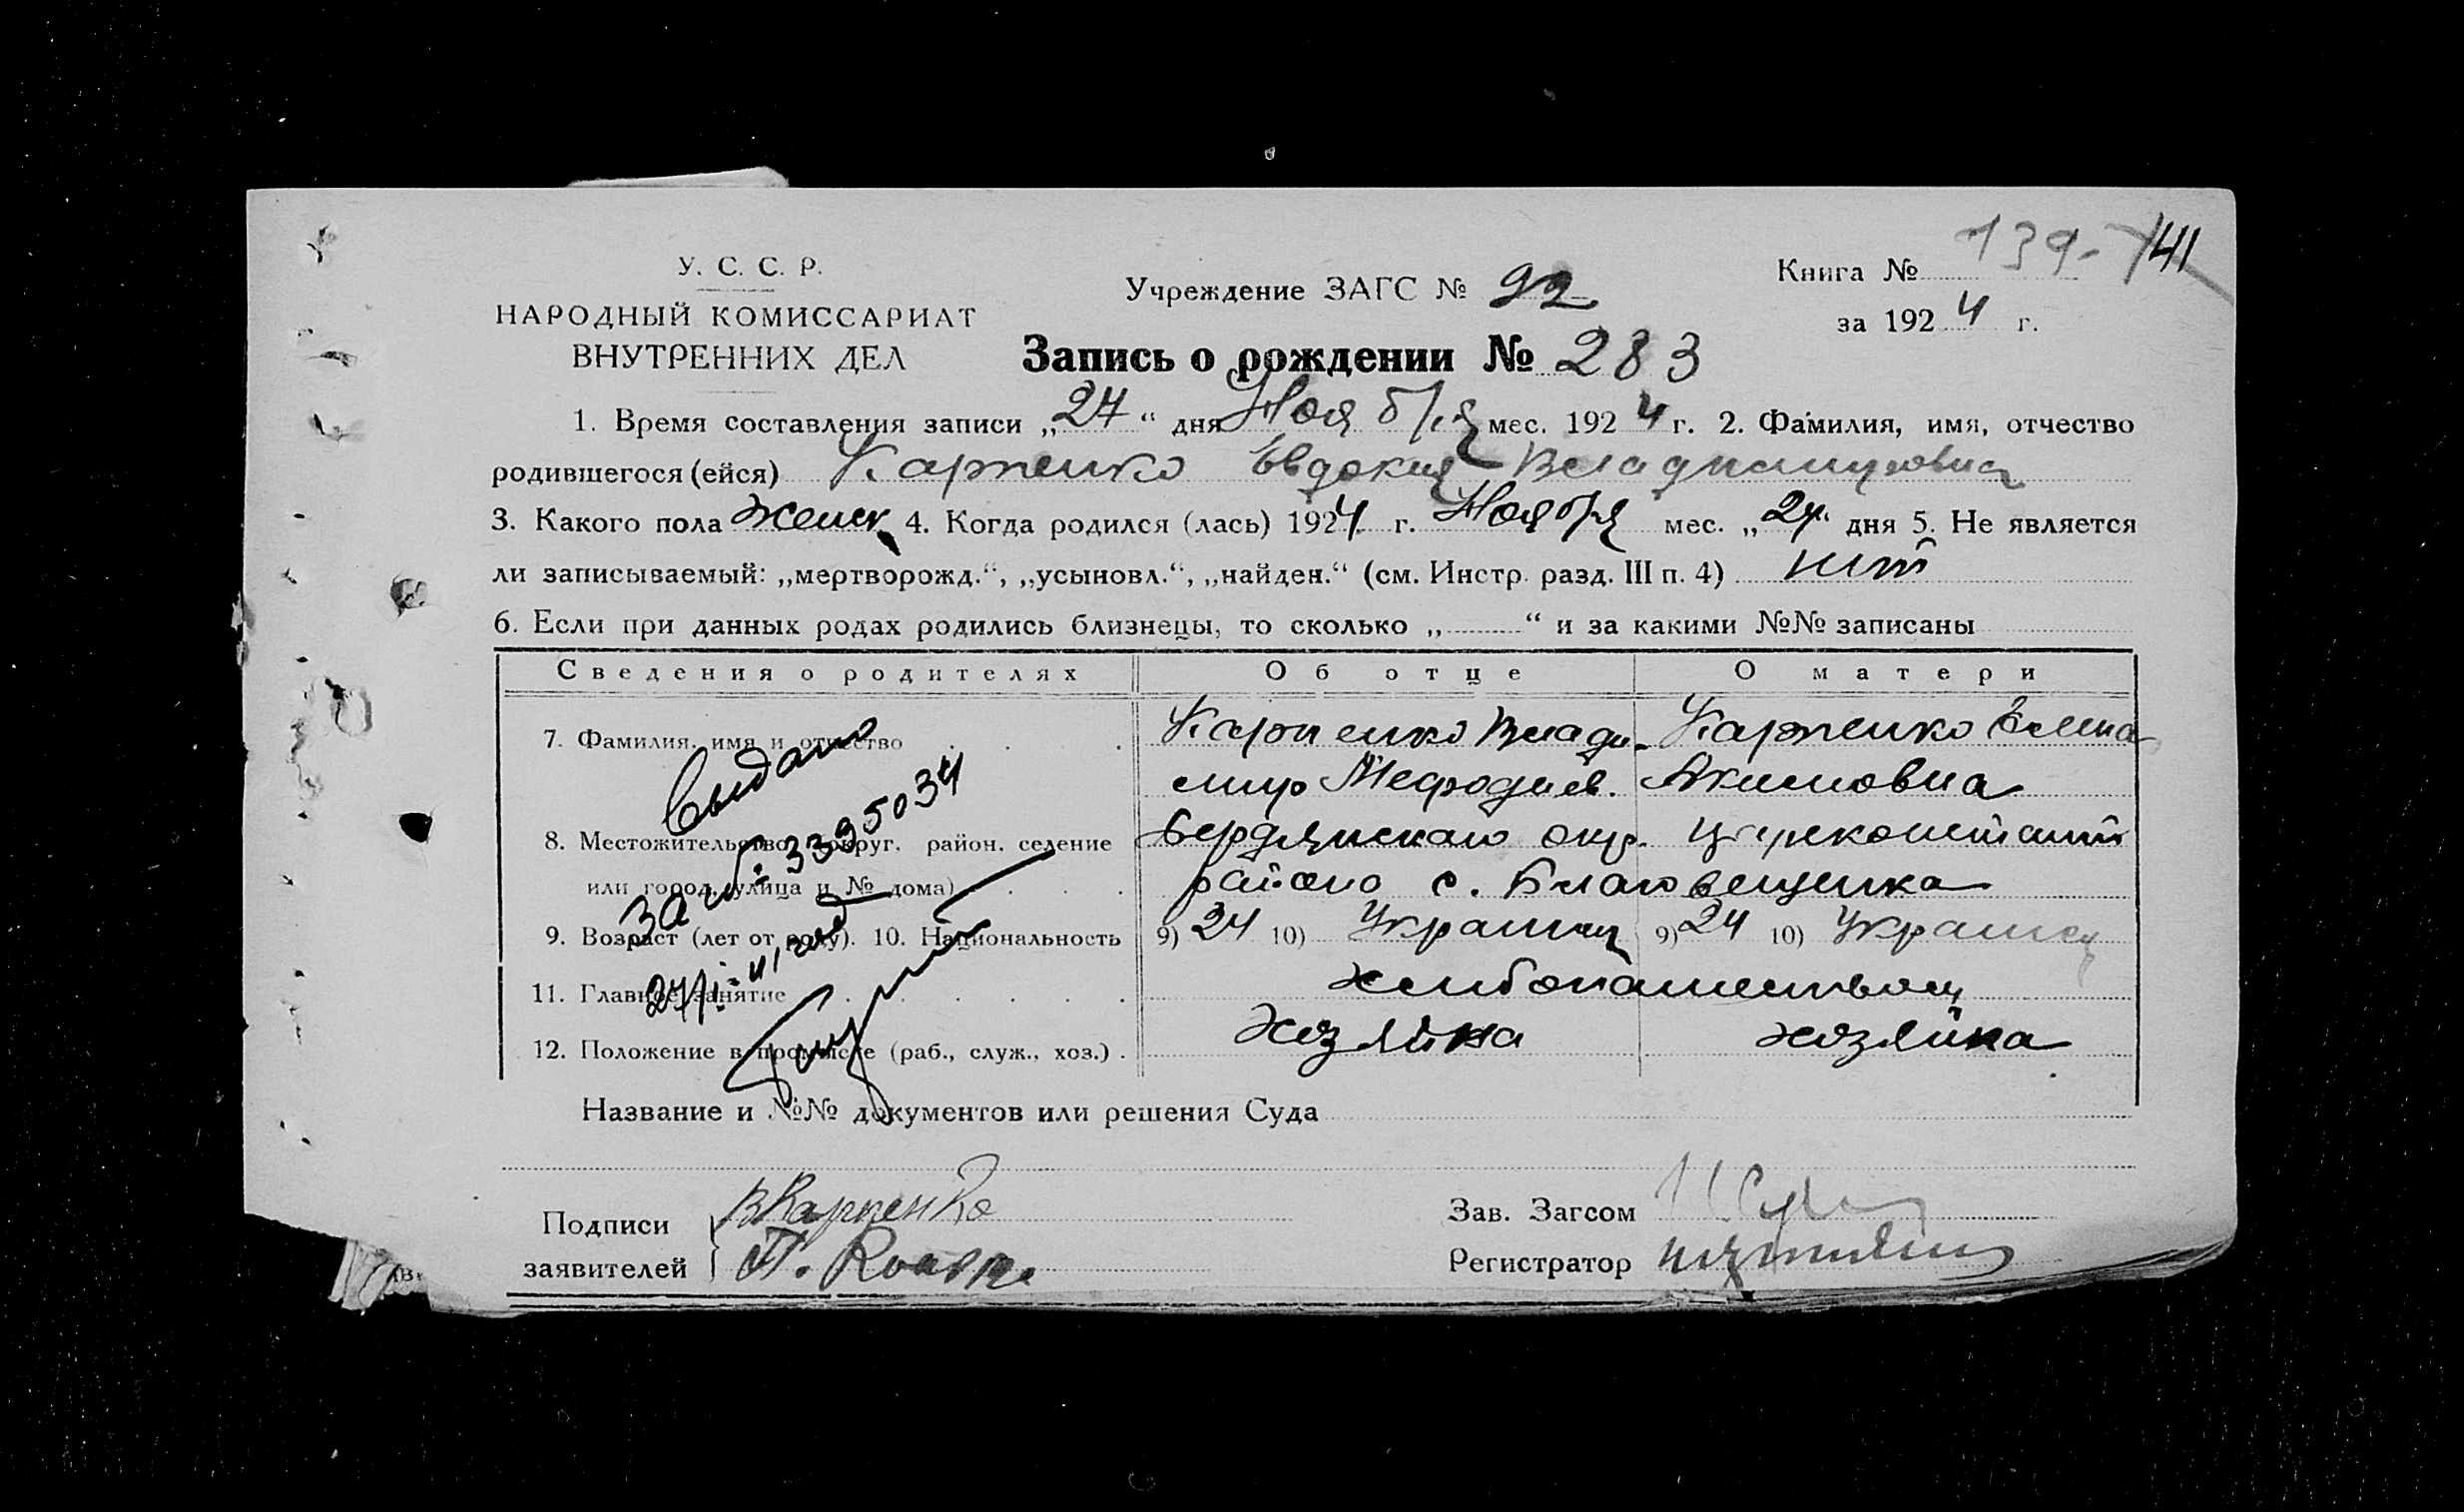 139- 141
У. С. С. Р.
НАРОДНЫЙ КОМИССАРИАТ
ВНУТРЕННИХ ДЕЛ
Учреждение ЗАГС № 92
Книга №
за 1924 г.
Запись о рождении № 283
1. Время составления записи „24“ дня Ноября мес. 1924 г. 2. Фамилия, имя, отчество
родившегося (ейся) Карпенко Евдокия
3. Какого пола женск 4. Когда родился (лась) 1924 г. Ноября мес. „ дня 5. Не является
ли записываемый: „мертворожд.“, „усыновл.“, „найден.“ (см. Инстр. разд. III п. 4) нет
6. Если при данных родах родились близнецы, то сколько „ “ и за какими №№ записаны
Сведения о родителях Об отце О матери
7. Фамилия, имя и отчество Карпенко Влади- Карпенко Елена
мир Мефодиев. Акимовна
8. Местожительство (округ, район, селение Бердянскаго окр.
или город, улица и № дома) района с. Благовещенка
9. Возраст (лет от роду). 10. Национальность 9) 24 10) Украинец 9) 24 10) Украинец
11. Главное занятие
12. Положение в промысле (раб., служ., хоз.) хозяйка хозяйка
Выдано
3395034
Название и №№ документов или решения Суда
Подписи заявителей
ВКарпенко
П.
Зав. Загсом
Регистратор